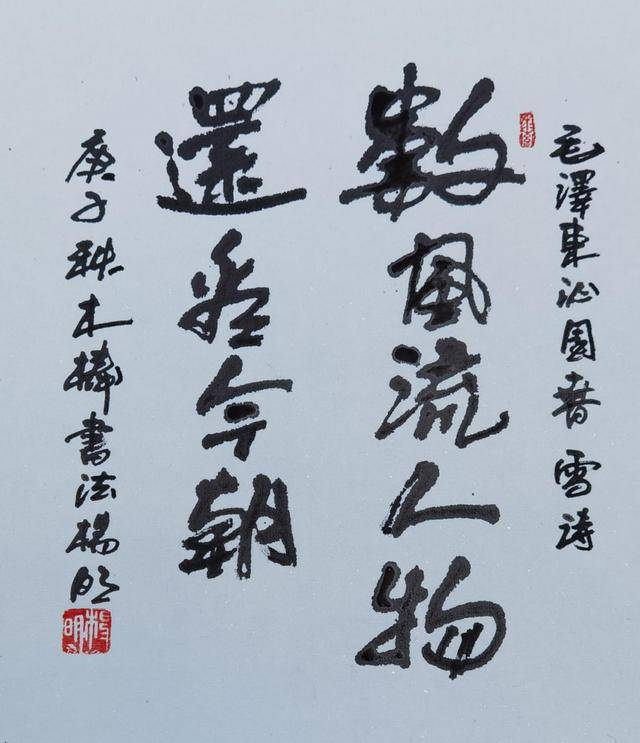 毛澤東沁園春雪詩
數風流人物
還看今朝
庚子秋木棒書法楊明